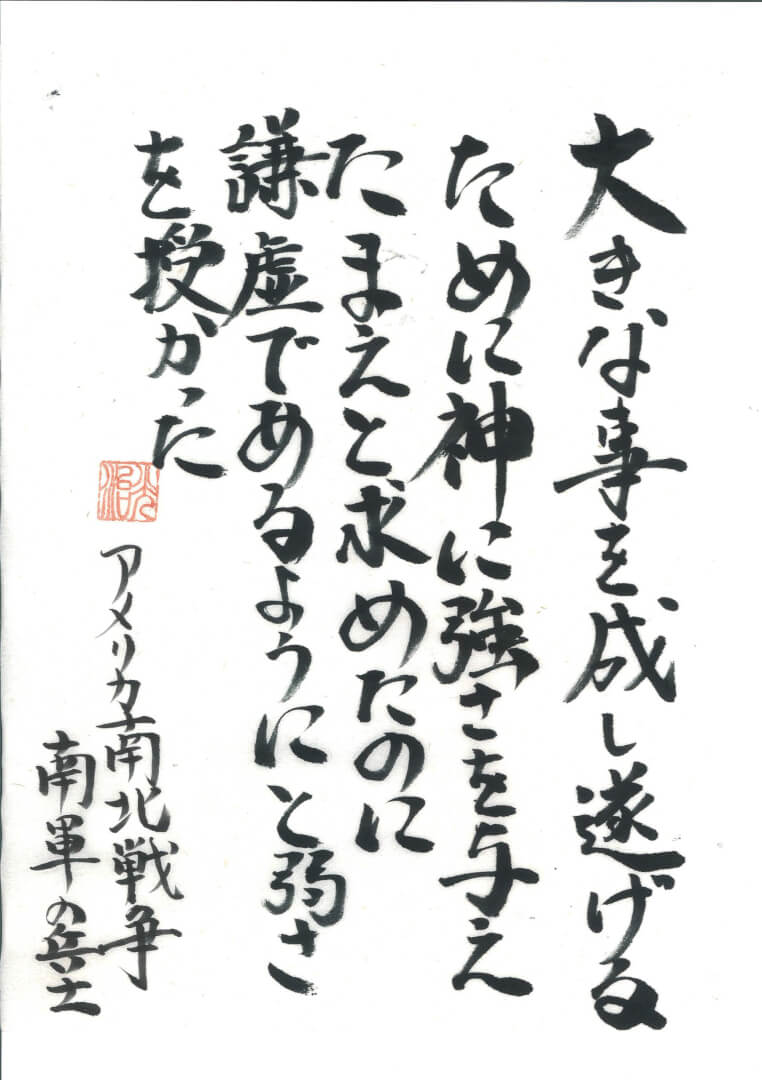 大きな事を成し遂げる
ために神に強さを与え
たまえと求めたのに
謙虚であるようにと弱さ
を授かった
アメリカ南北戦争
南軍の兵士